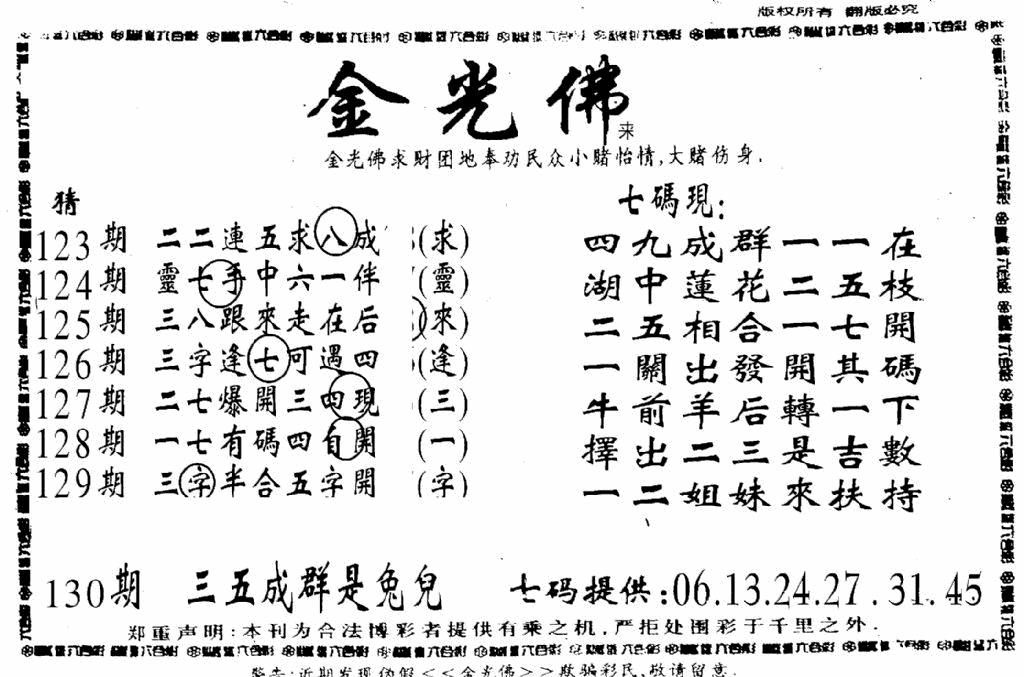 版权所有 翻版必究
金光佛
来
金光佛求财团地奉功民众小赌怡情,大赌伤身.
猜
123期 二二連五求八成 (求)
124期 靈七手中六一伴 (靈)
125期 三八跟來走在后 (來)
126期 三字逢七可遇四 (逢)
127期 二七爆開三四現 (三)
128期 一七有碼四自開 (一)
129期 三字半合五字開 (字)
七碼現:
四九成群一一在
湖中蓮花二五枝
二五相合一七開
一關出發開其碼
牛前羊后轉一下
擇出二三是吉數
一二姐妹來扶持
130期 三五成群是兔兒 七码提供:06.13.24.27.31.45
郑重声明:本刊为合法博彩者提供有乘之机,严拒处围彩于千里之外.
警告:近期发现伪假<<金光佛>>欺骗彩民,敬请留意.